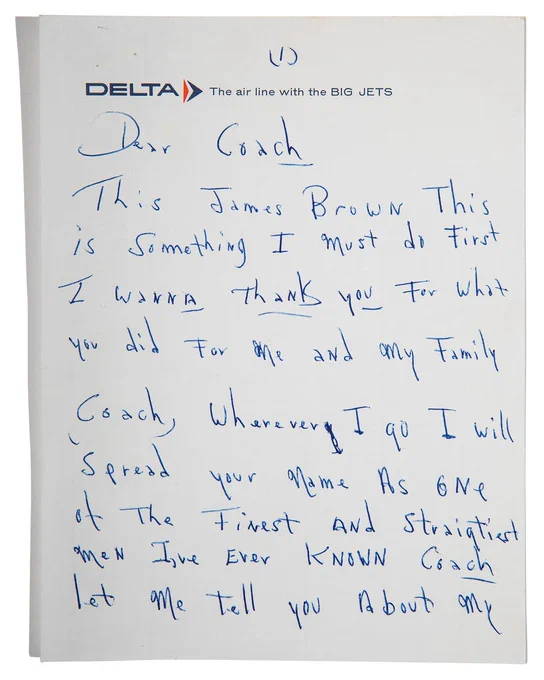 (1)
DELTA The air line with the BIG JETS
Dear Coach
This James Brown This
is Something I must do First
I wanna Thank you For what
you did For me and my Family
Coach, Wherever I go I will
Spread your Name As one
of The Finest AND Straigtiest
men I,ve Ever KNOWN Coach
let me Tell you About my